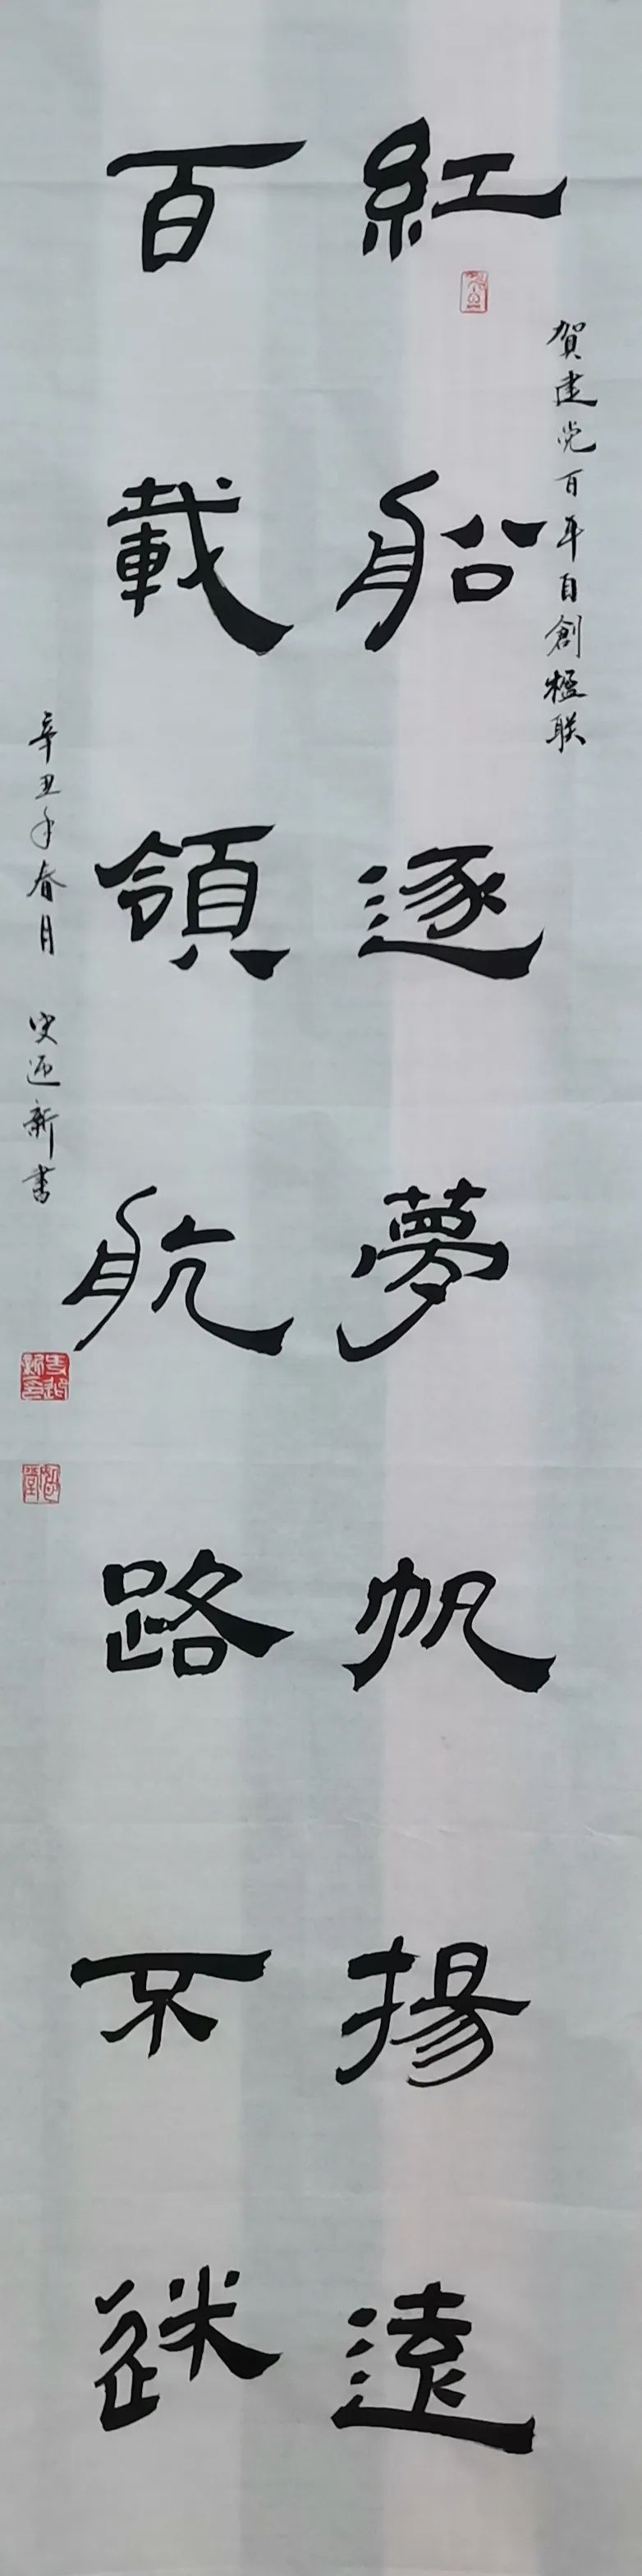 賀建党百年自創楹联
紅船逐夢帆揚遠
百載領航路不迷
辛丑年春月 史迎新書